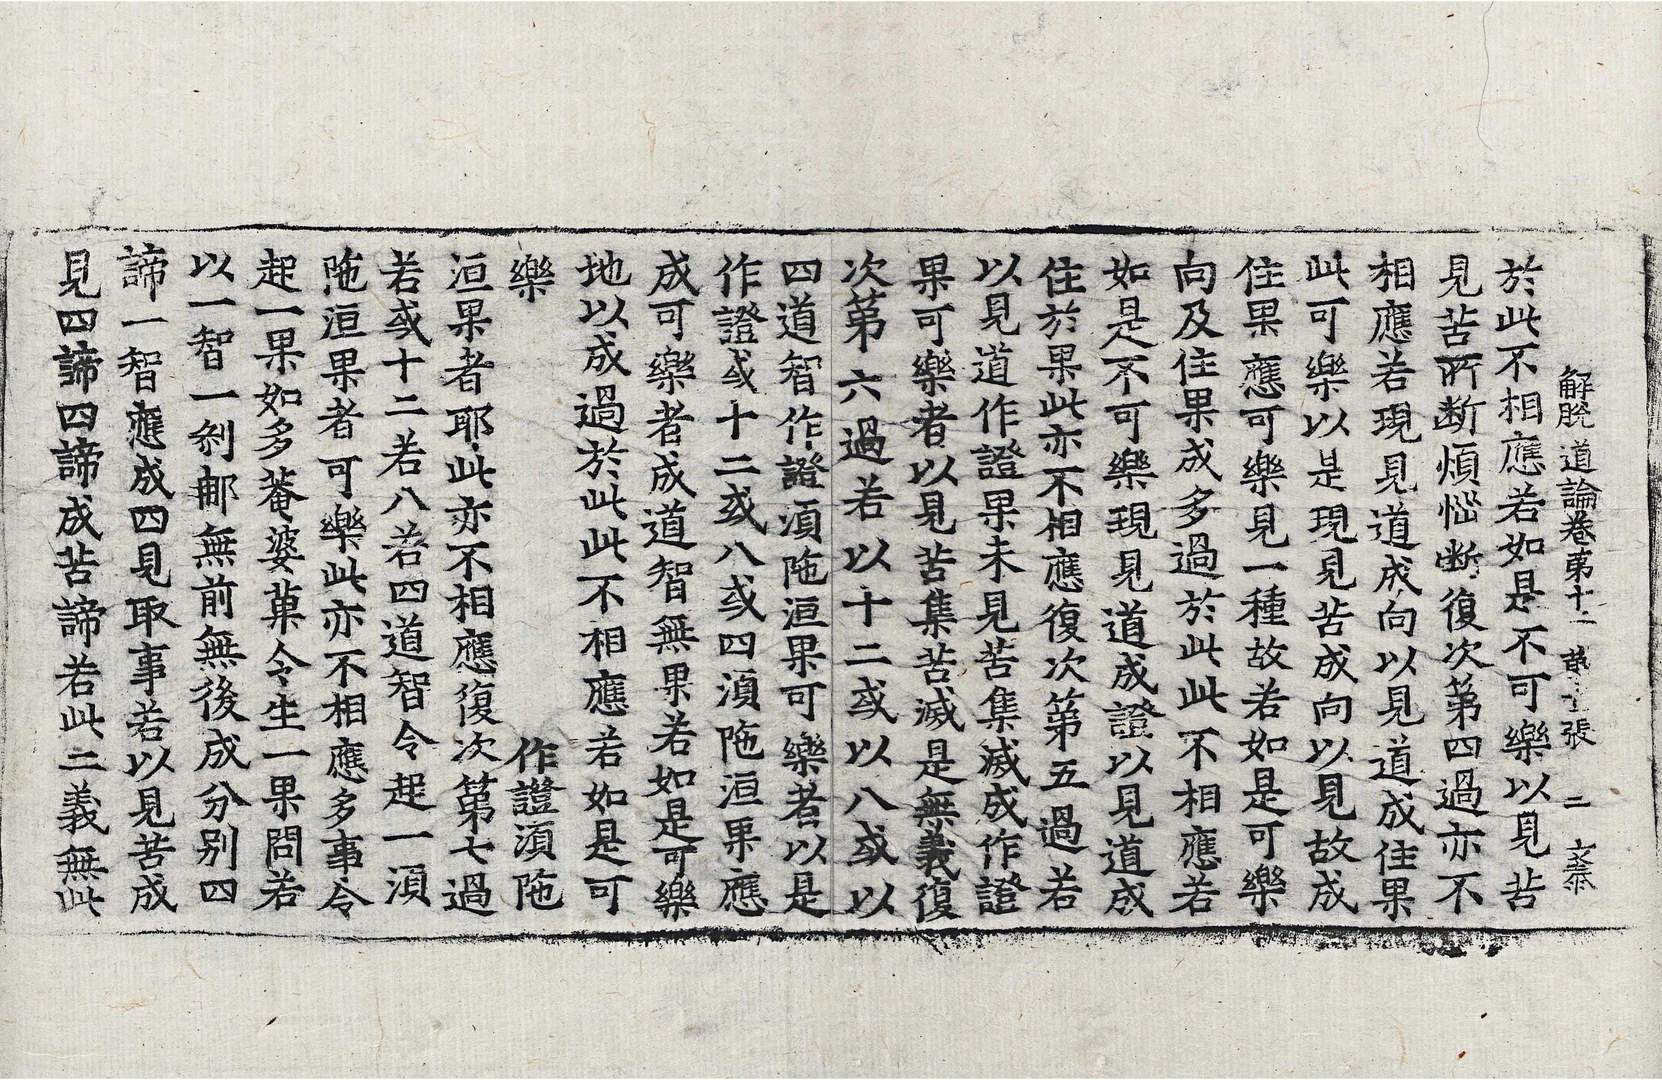 解脫道論卷第十二 第二張 二 泰
於此不相應若如是不可樂以見苦
見苦所斷煩惱斷復次第四過亦不
相應若現見道成向以見道成住果
此可樂以是現見苦成向以見故成
住果應可樂見一種故若如是可樂
向及住果成多過於此此不相應若
如是不可樂現見道成證以見道成
住於果此亦不相應復次第五過若
以見道作證果未見苦集滅成作證
果可樂者以見苦集苦滅是無義復
次第六過若以十二或以八或以
四道智作證須陁洹果可樂者以是
作證或十二或八或四須陁洹果應
成可樂者成道智無果若如是可樂
地以成過於此此不相應若如是可
樂 作證須陁
洹果者耶此亦不相應復次第七過
若或十二若八若四道智令起一須
陁洹果者可樂此亦不相應多事令
起一果如多菴婆菓令生一果問若
以一智一剎那無前無後成分別四
諦一智應成四見取事若以見苦成
見四諦四諦成苦諦若此二義無此